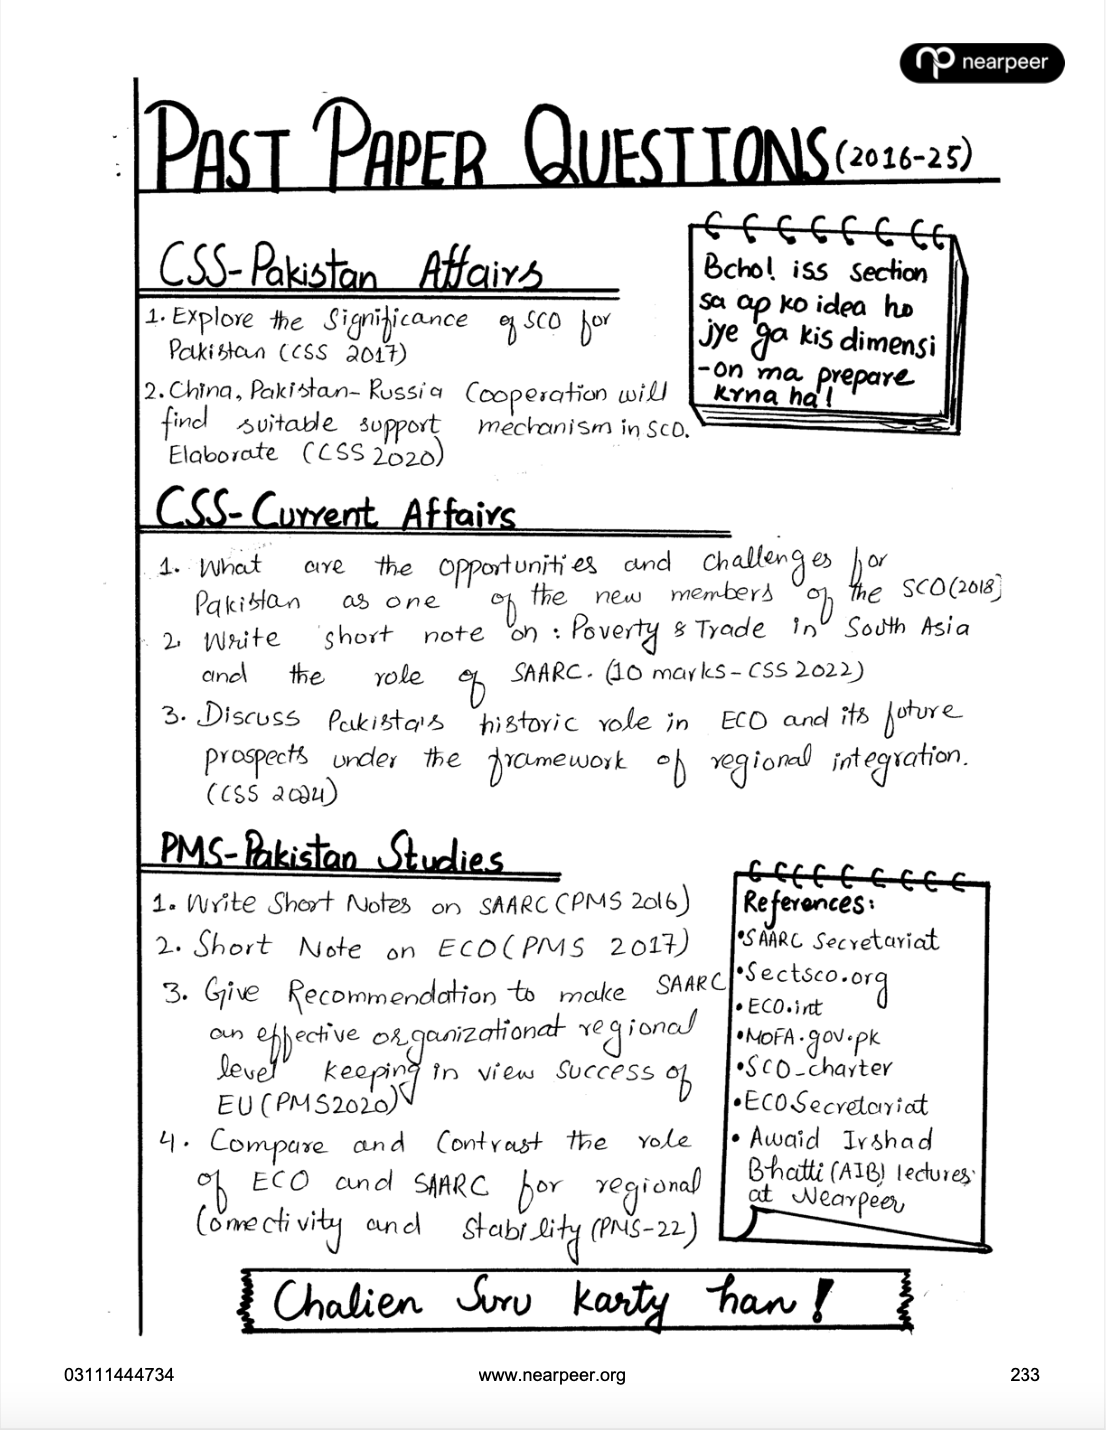 nearpeer
PAST PAPER QUESTIONS (2016-25)
CSS-Pakistan Affairs
1. Explore the Significance of SCO for
Pakistan (CSS 2017)
2. China, Pakistan-Russia Cooperation will
find suitable support mechanism in SCO.
Elaborate (CSS 2020)
Bcho! iss section
sa ap ko idea ho
jye ga kis dimensi
-on ma prepare
krna ha!
CSS-Current Affairs
1. What are the opportunities and challenges for
Pakistan as one of the new members of the SCO(2018)
2. Write short note on : Poverty & Trade in South Asia
and the role of SAARC. (10 marks-CSS 2022)
3. Discuss Pakista's historic role in ECO and its future
prospects under the framework of regional integration.
(CSS 2024)
PMS-Pakistan Studies
1. Write Short Notes on SAARC (PMS 2016)
2. Short Note on ECO (PMS 2017)
3. Give Recommendation to make SAARC
an effective organizational regional
level keeping in view success of
EU (PMS2020)
4. Compare and Contrast the role
of ECO and SAARC for regional
Connectivity and stability (PMS-22)
References:
•SAARC Secretariat
•Sectsco.org
•ECO.int
•MOFA.gov.pk
•SCO_charter
•ECO.Secretariat
•Awaid Irshad
Bhatti (AIB) lectures
at Nearpeer
Chalien Suru karty han!
03111444734 www.nearpeer.org 233